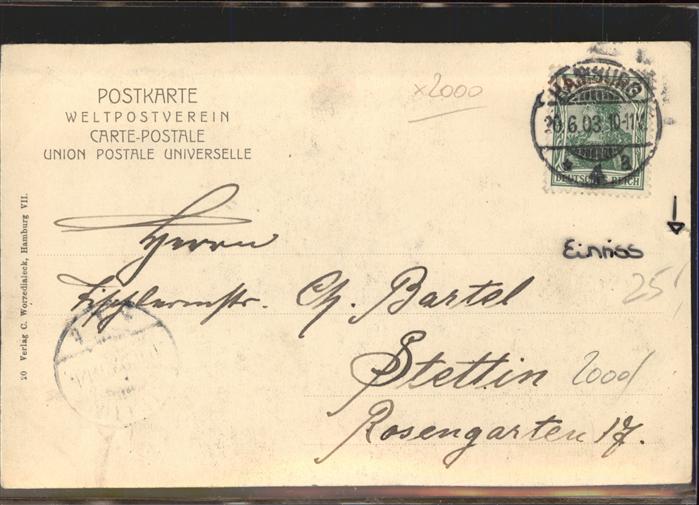 POSTKARTE
WELTPOSTVEREIN
CARTE-POSTALE
UNION POSTALE UNIVERSELLE
×2000
HAMBURG
20.6.03.10-11
DEUTSCHES REICH
Einriss
25
Herrn
Tischlermstr. Ch. Bartel
Stettin
2000
Rosengarten 17.
20 Verlag C. Worzedialeck, Hamburg VII.